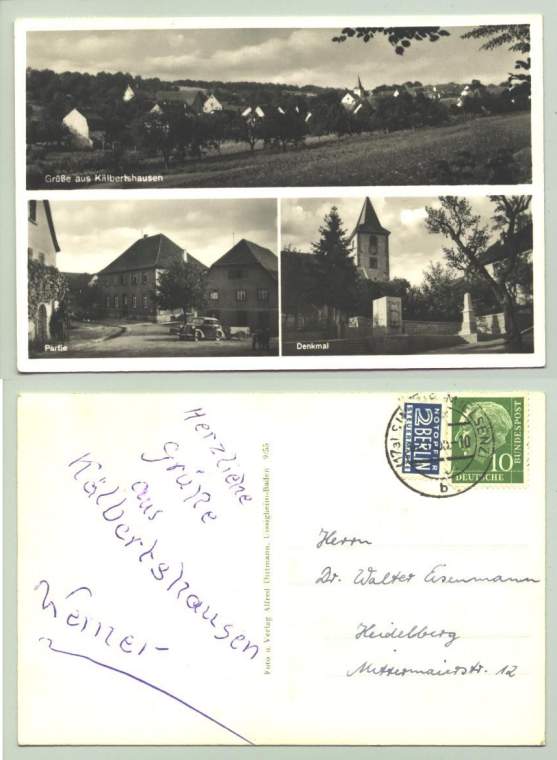 Grüße aus Kälbertshausen
Partie
Denkmal
Herzliche
Grüße
aus
Kälbertshausen
Werner
Foto u. Verlag Alfred Dittmann, Uissigheim-Baden 9/55
NOTOPFER
2 BERLIN
STEUERMARKE
(17a) SINSHEIM
ELSENZ
b
10
DEUTSCHE
BUNDESPOST
Herrn
Dr. Walter Eisenmann
Heidelberg
Mittermaierstr. 12